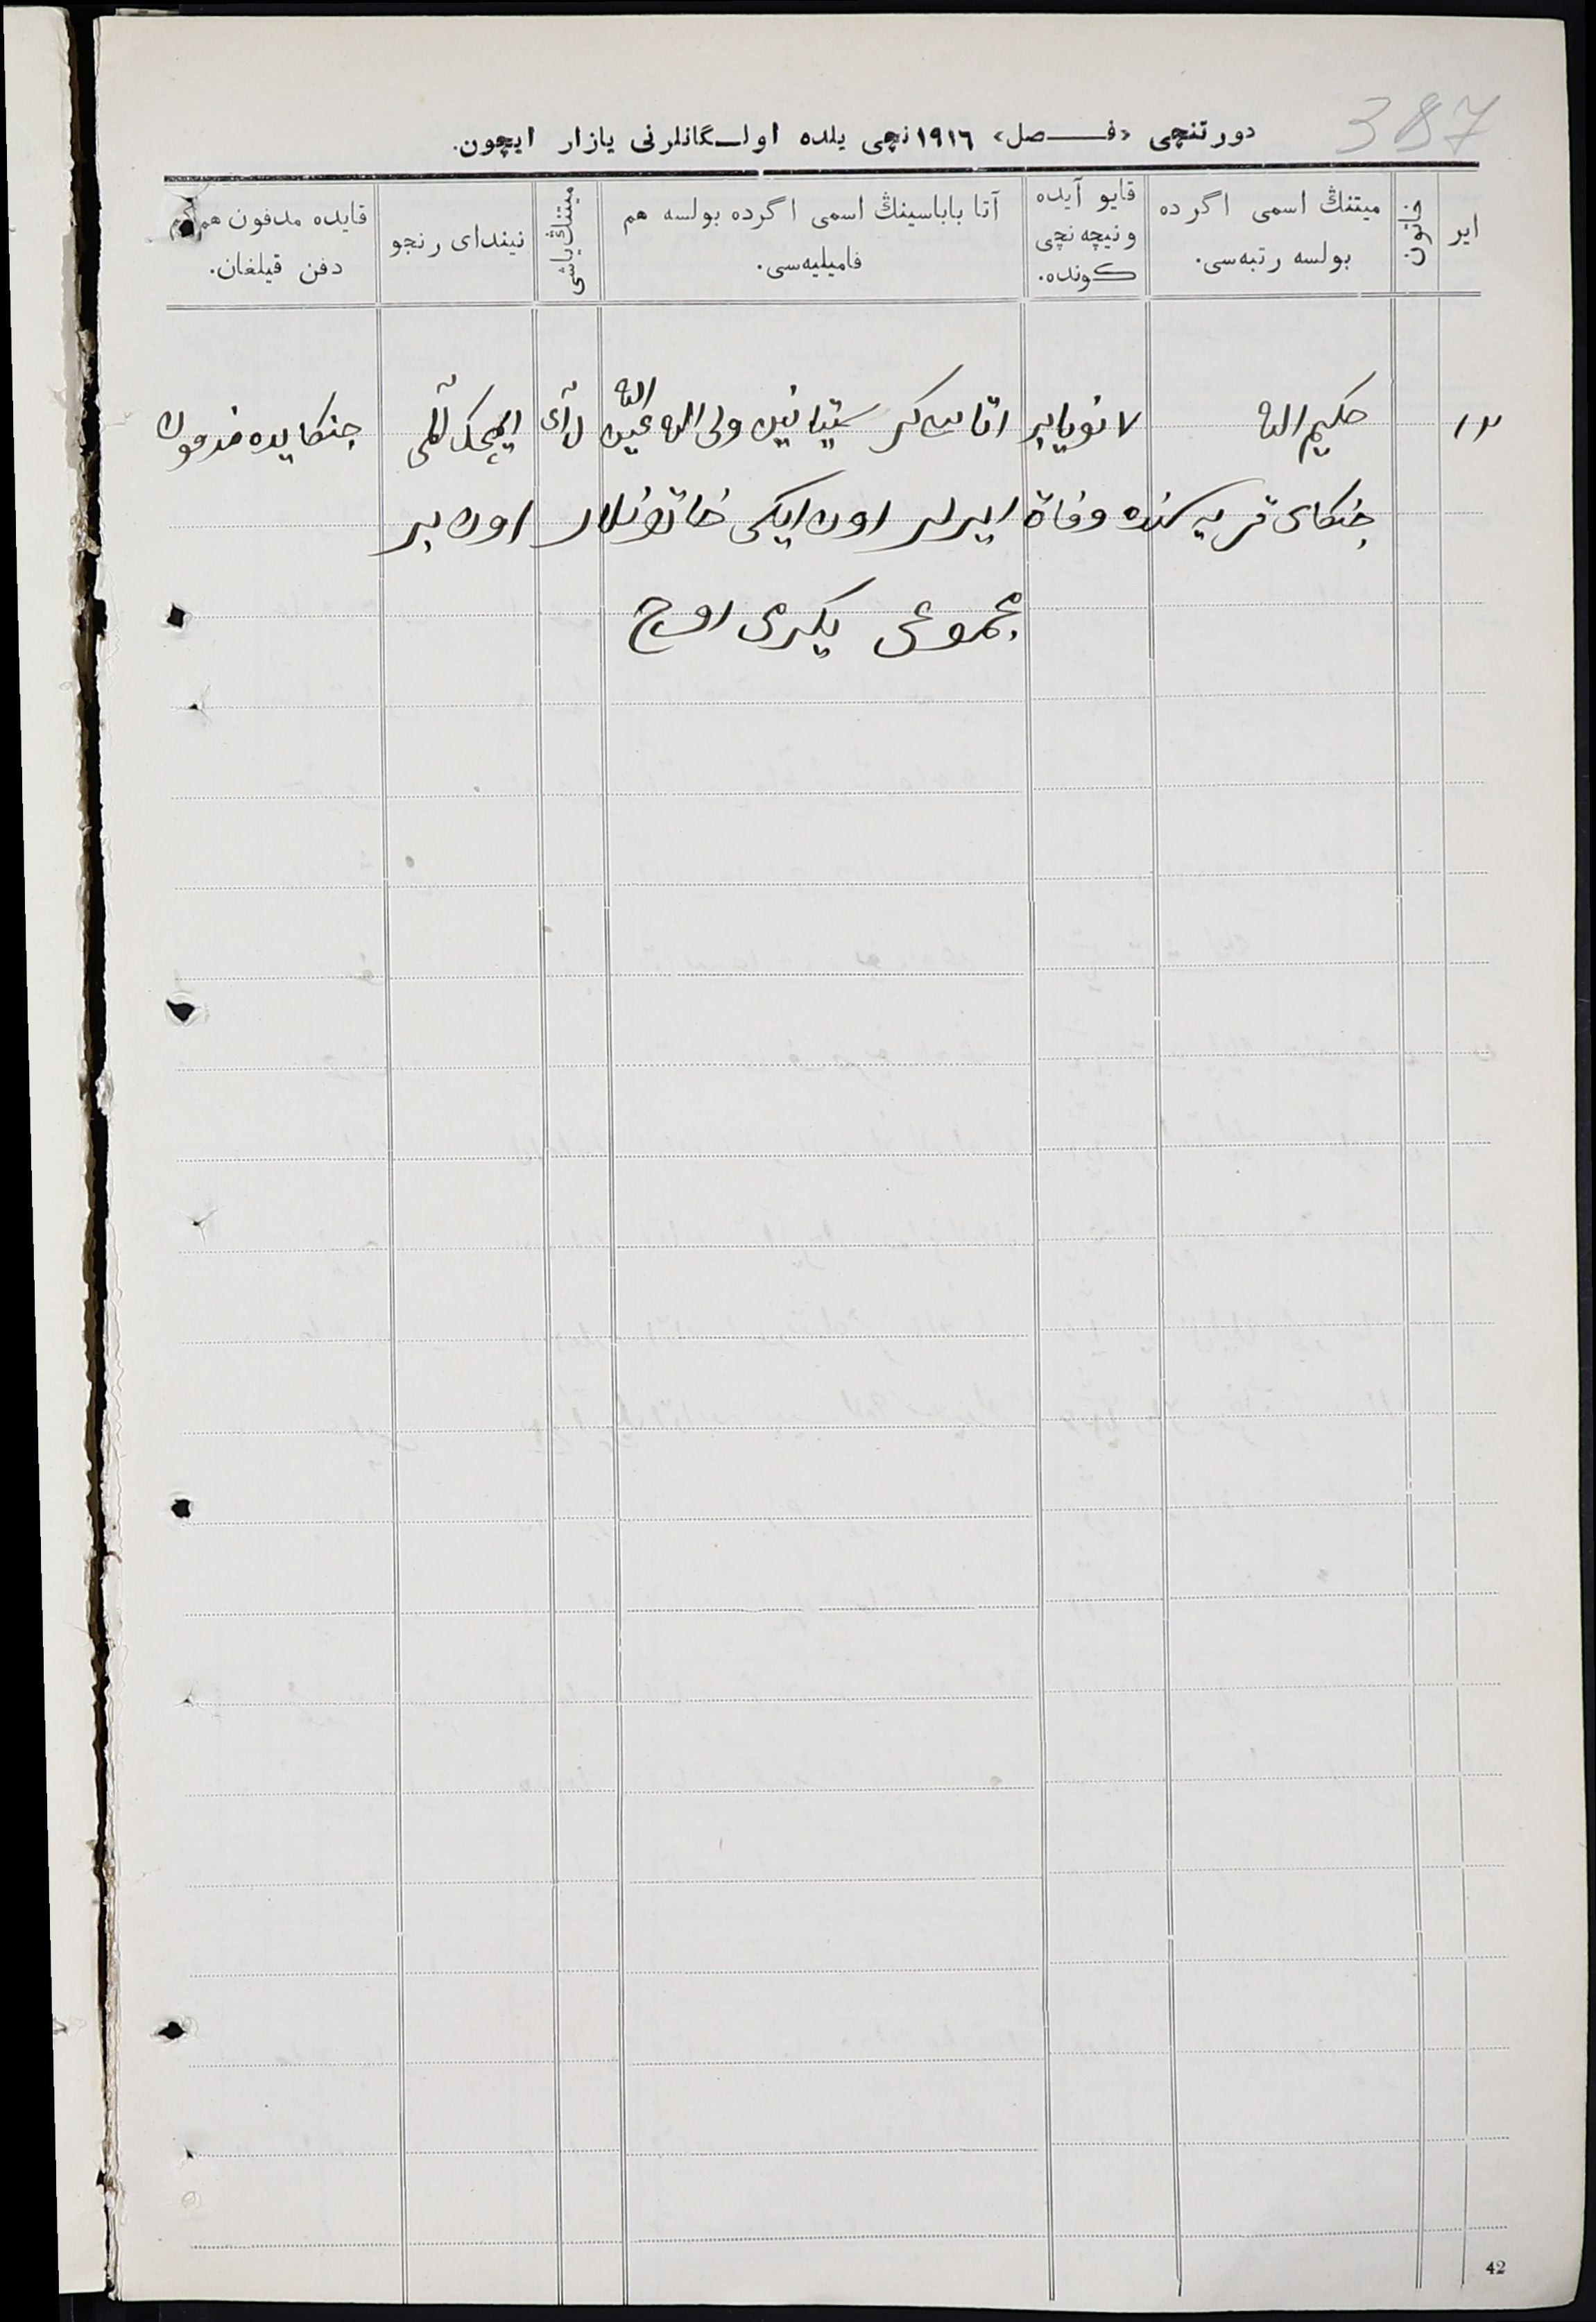 387
دورتنچی «فـصل» ١٩١٦نچی یلده اولـگانلرنی یازار ایچون.
ایر
خاتون
میتنڭ اسمی اگرده
بولسه رتبه‌سی.
قایو آیده
ونیچه نچی
کونده.
آتا باباسینڭ اسمی اگرده بولسه هم
فامیلیه‌سی.
میتنڭ یاشی
نیندای رنجو
قایده مدفون هم
دفن قیلغان.
١٢ حکیم الله ٧ نویابر ولی الله آی جنکایده مدفون
جنکای قریه سنده وفاة ایرلر اون ایکی خاتونلار اون بر
مجموعی یکرمی اوچ
42